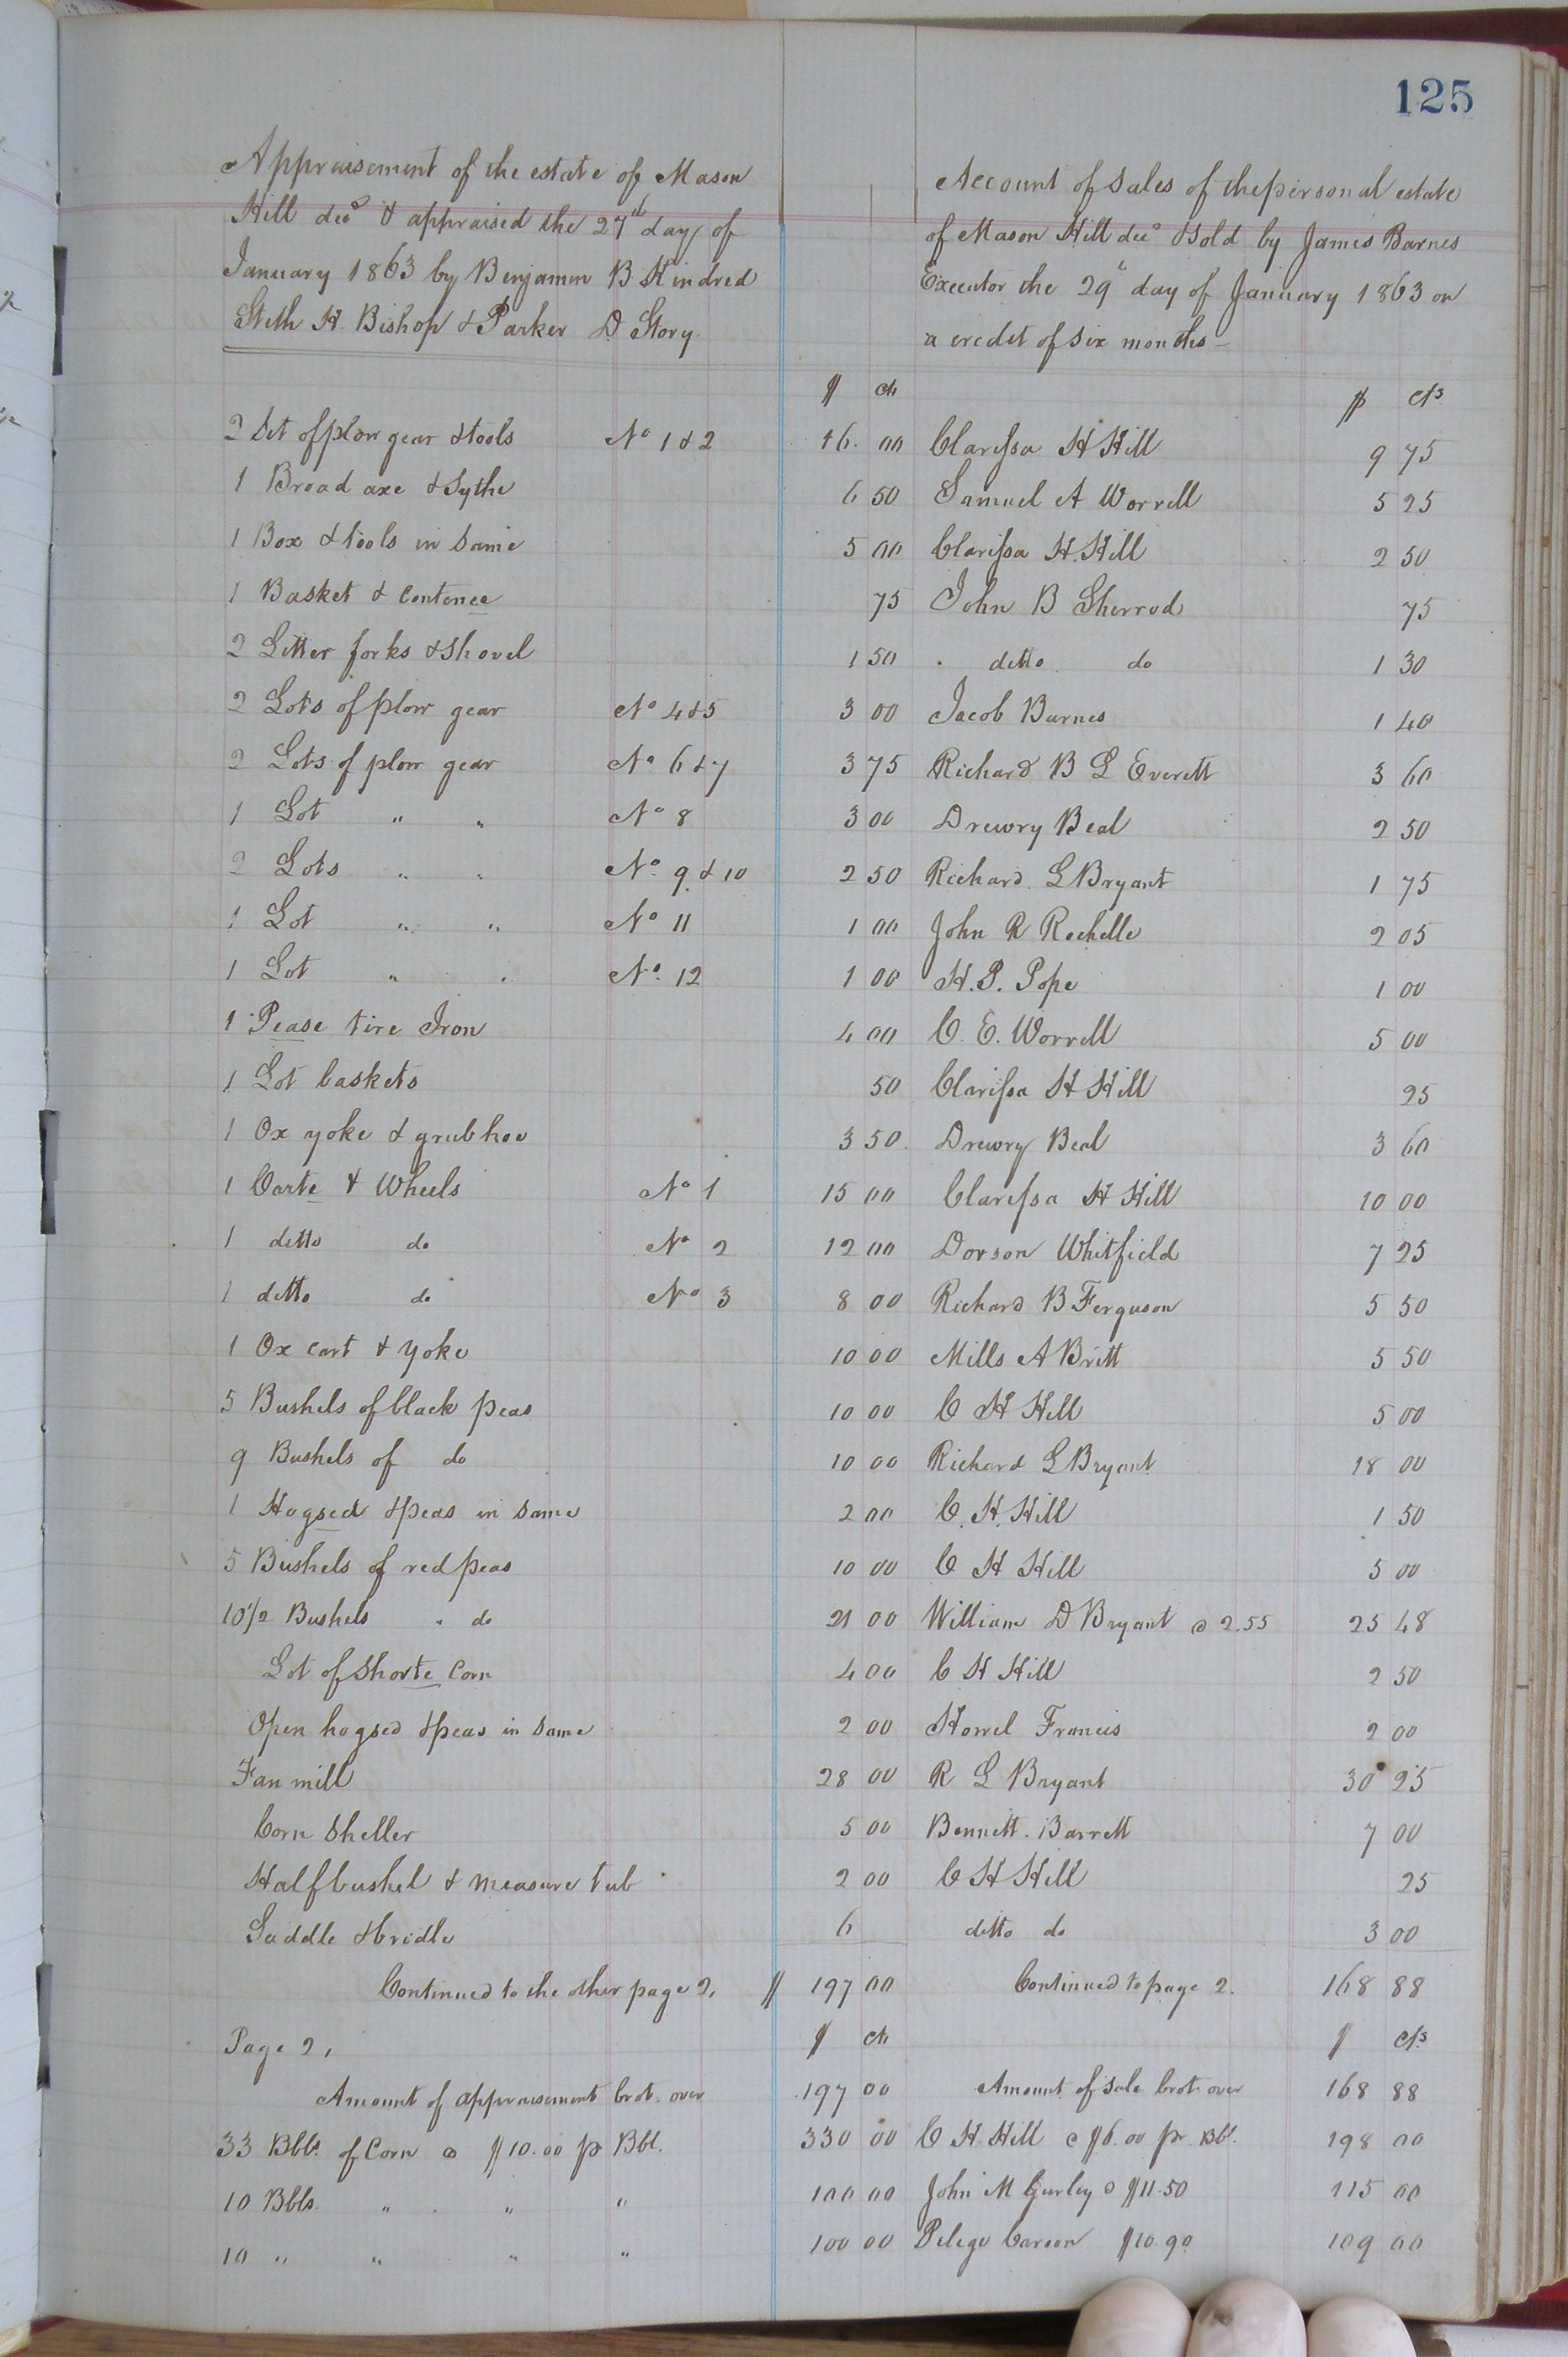 125
Appraisement of the estate of Mason
Hill decd & appraised the 27th day of
January 1863 by Benjamin B. Kindred
Stith H. Bishop & Parker D. Story
Account of Sales of the personal estate
of Mason Hill decd & Sold by James Barnes
Executor the 29th day of January 1863 on
a credit of six months
$ cts $ cts
2 Set of plow gear & tools No 1 & 2 16. 00 Clarissa H Hill 9 75
1 Broad axe & Sythe 6 50 Samuel A Worrell 5 25
1 Box & tools in Same 5 00 Clarissa H. Hill 2 50
1 Basket & Contence 75 John B Sherrod 75
2 Litter forks & Shovel 1 50 ditto do 1 30
2 Lots of plow gear No 4 & 5 3 00 Jacob Barnes 1 40
2 Lots of plow gear No 6 & 7 3 75 Richard B L Everett 3 60
1 Lot " " No 8 3 00 Drewry Beal 2 50
2 Lots " " No. 9 & 10 2 50 Richard L Bryant 1 75
1 Lot " " No 11 1 00 John R Rochelle 2 05
1 Lot " " No. 12 1 00 H. P. Pope 1 00
1 Pease tire Iron 4 00 C. E. Worrell 5 00
1 Lot baskets 50 Clarissa H Hill 25
1 Ox yoke & grub hoe 3 50 Drewry Beal 3 60
1 Carte & Wheels No 1 15 00 Clarissa H Hill 10 00
1 ditto do No 2 12 00 Dorson Whitfield 7 25
1 ditto do No 3 8 00 Richard B Ferguson 5 50
1 Ox cart & yoke 10 00 Mills A Britt 5 50
5 Bushels of black peas 10 00 C H Hill 5 00
9 Bushels of do 10 00 Richard L Bryant 18 00
1 Hogsed & peas in Same 2 00 C. H. Hill 1 50
5 Bushels of red peas 10 00 C H Hill 5 00
10 1/2 Bushels " do 21 00 William D Bryant @ 2.55 25 48
Lot of Shorte Corn 4 00 C H Hill 2 50
Open hogsed & peas in Same 2 00 Howel Francis 2 00
Fan mill 28 00 R L Bryant 30 25
Corn Sheller 5 00 Bennett. Barrett 7 00
Half bushel & measure tub 2 00 C H Hill 25
Saddle & bridle 6 ditto do 3 00
Continued to the other page 2, $ 197 00 Continued to page 2. 168 88
Page 2, $ cts $ cts
Amount of appraisement brot. over 197 00 Amount of Sale brot. over 168 88
33 Bbls. of Corn @ $10.00 pr Bbl. 330 00 C H. Hill @ $6.00 pr Bbl. 198 00
10 Bbls. " " " 100 00 John M Gurley @ $11.50 115 00
10 " " " " 100 00 Pelege Carson $10.90 109 00